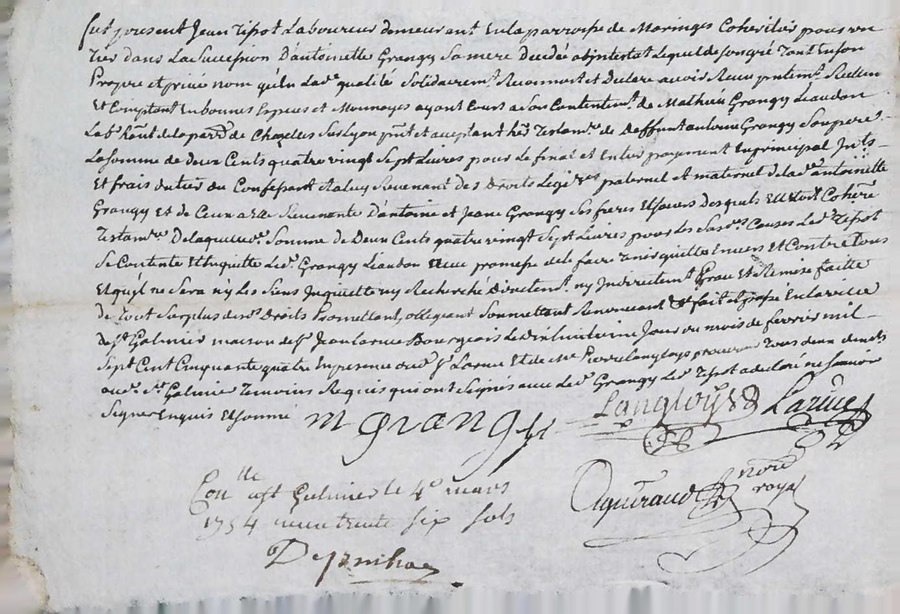 fut present Jean Tissot Laboureur demeurant En la parroisse de Maringes Coheritié pour un
tier dans La Succession D'antoinette Grangy Sa mere Decedée abjntestat Lequel de son gré Tant En son
Propre et privé nom qu'en Lad.e qualité Solidairemt. Reconnoit et Declare avoir Recu pntemt. Reellemt
Et Comptant En bonnes Especes et Monnoyes ayant Cours a Son Contentemt. de Mathieu Grangy Liaudon
Labr. hant. de la parr. de Chazelles Sur Lyon pnt et acceptant her. Testamre. de Deffunt antoine Grangy Son pere
La Somme de Deux Cents quatre vingt Sept Livres pour le final et Entier payement En principal Jnts
Et frais du tier du Confessant a Luy Revenant des Droits Legi.mes paternel et maternel de lad.e antoinette
Grangy et de Ceux a Elle Revenants D'antoine et Jeane Grangy Ses freres et Soeurs Desquels Elle Etoit Coherre
Testamre. De laquelle Somme de Deux Cents quatre vingt Sept Livres pour les Causes Led. Tissot
Se Contente Et En quitte Led. Grangy Liaudon avec promesse de le faire Tenir quitte Envers Et Contre Tous
Et qu'jl ne Sera n'y Les Siens Jnquiette ny Recherché Directemt. ny Jndirectemt. Grau Et Remise faitte
De tout Surplus desd. Droits Promettant, obligeant Soumettant Renonceant & fait et passé En la ville
de St. Galmier maison de Sr. Jean Larue Bourgeois Le dixhuitieme Jour du mois de fevrier mil
Sept Cent Cinquante quatre En presence dud. Sr. Larue Et de Me. Pierre Langloys procureur Tous deux demts
aud. St. Galmier Temoins Requis qui ont Signés avec Led. Grangy Led. Tissot a declaré ne Scavoir
Signer Enquis et Sommé
m grangy Langloys Larue
Con.lle a St Galmier le 4e mars
1754 recu trente six sols
Aguiraud nore royal